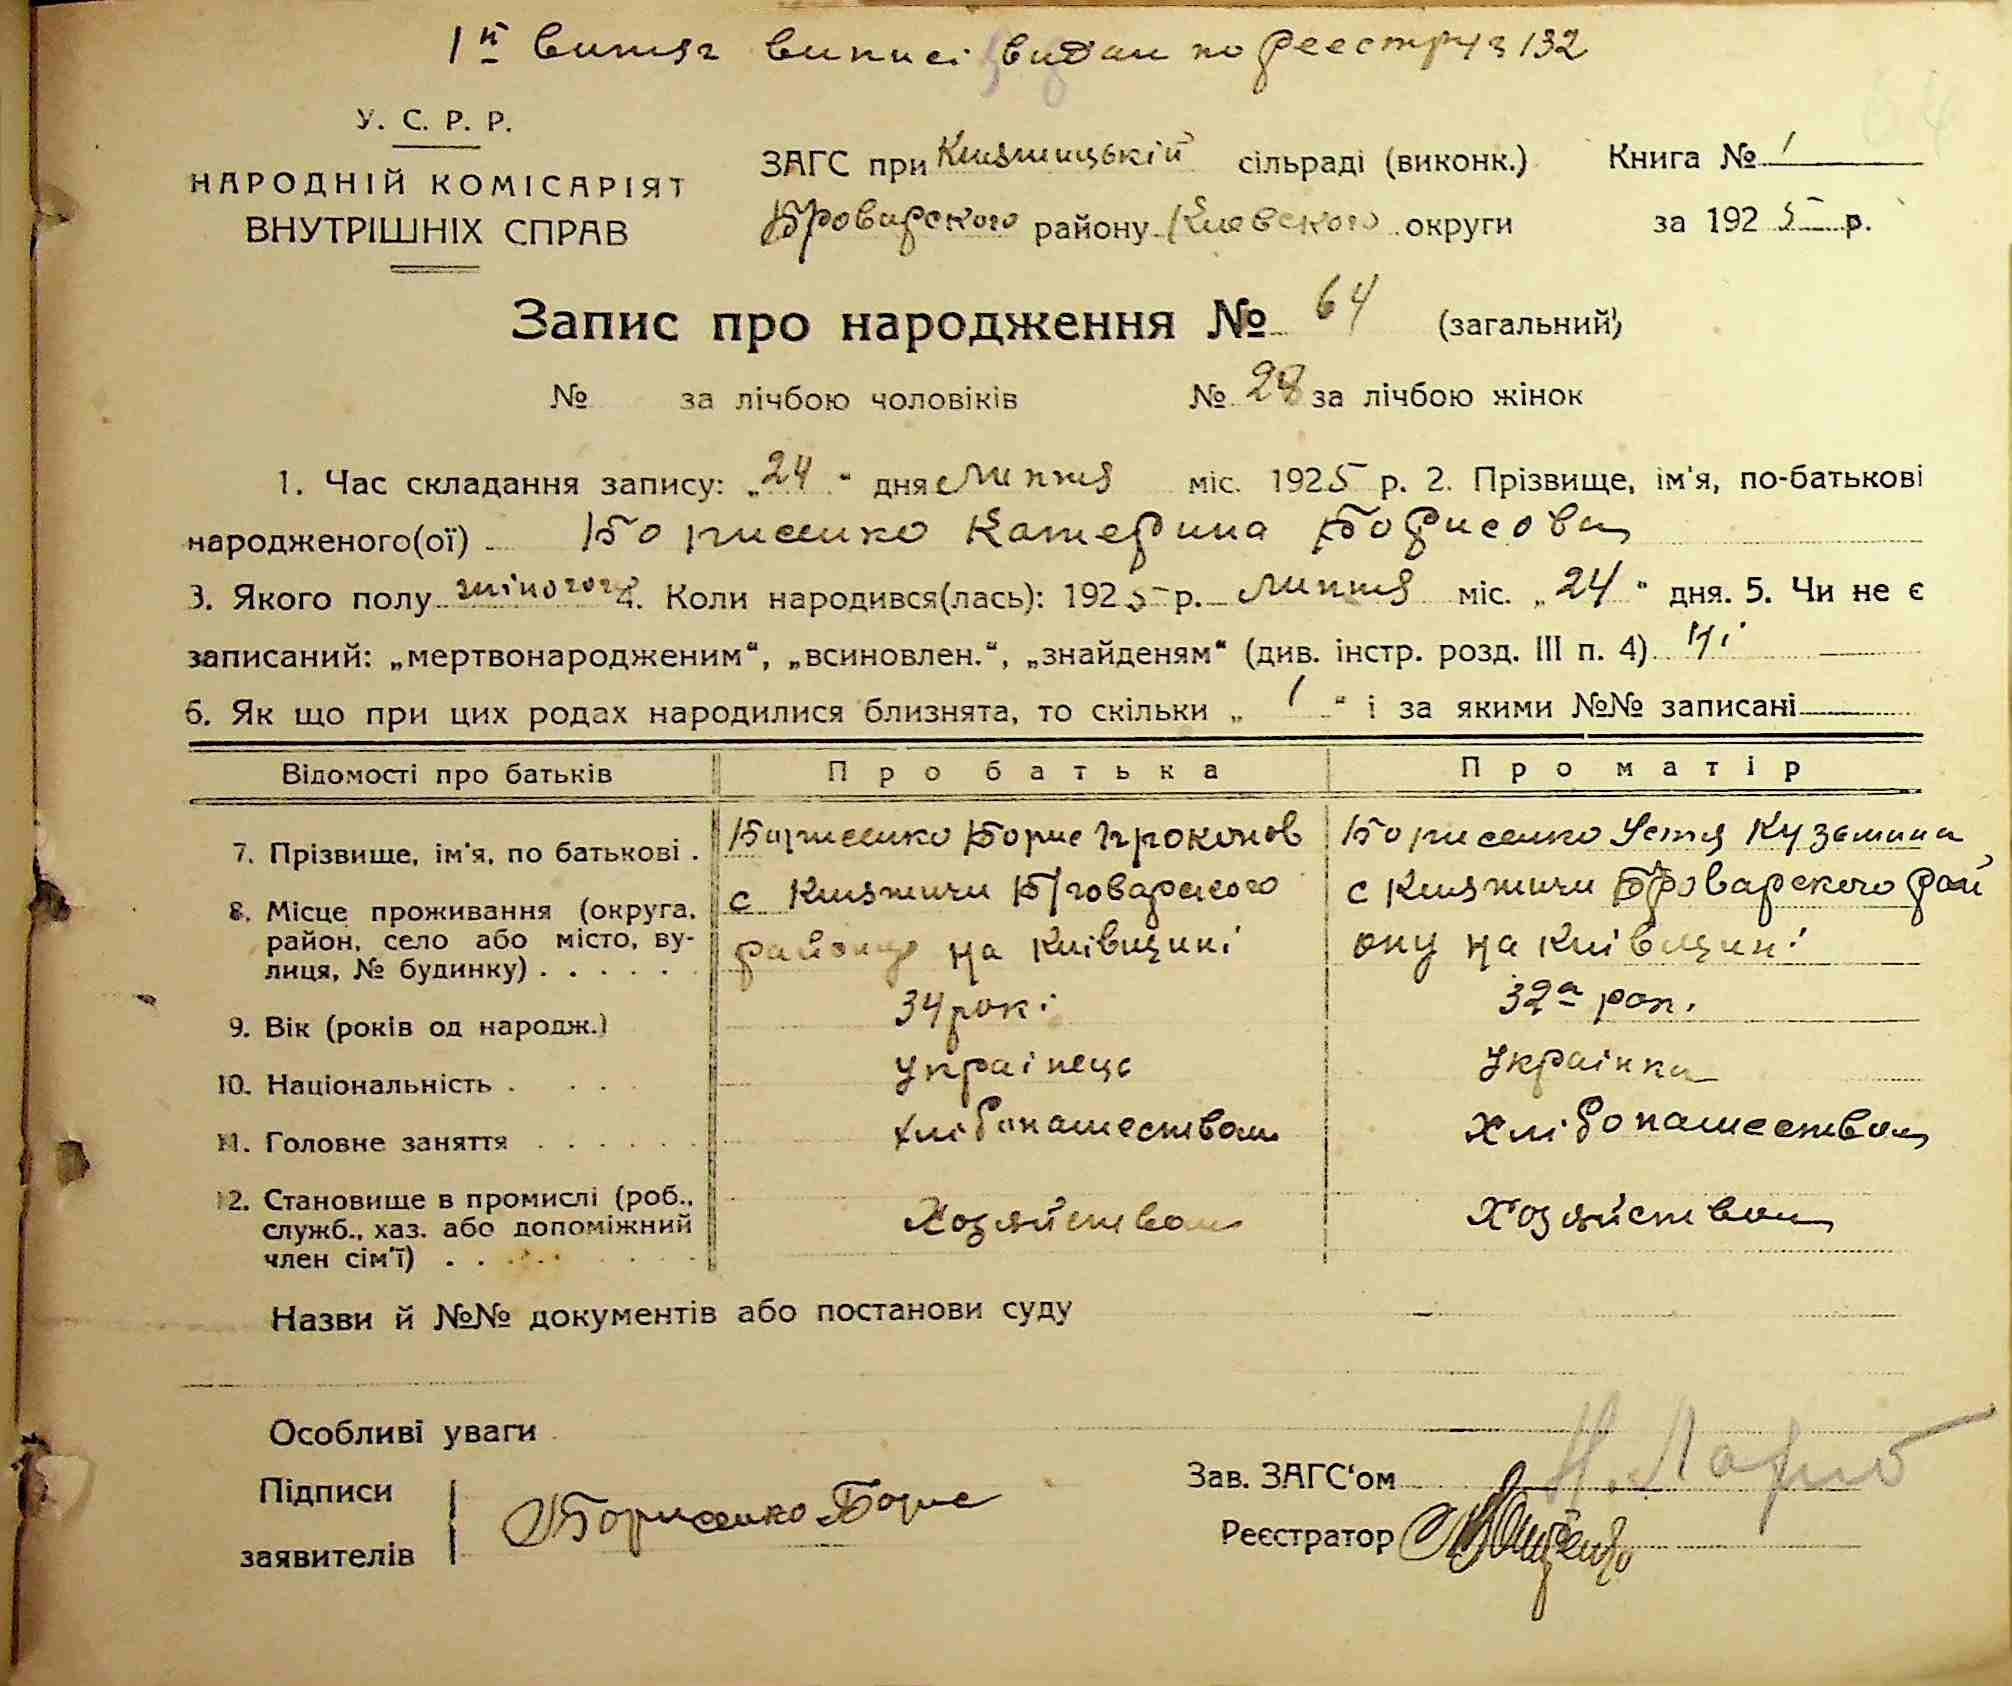 1й витяг виписі видан по реестру з 132
У. С. Р. Р.
НАРОДНІЙ КОМІСАРІЯТ
ВНУТРІШНІХ СПРАВ
ЗАГС при Княжицькій сільраді (виконк.) Книга № 1
Броварского району Киевского округи за 1925 р.
Запис про народження № 64 (загальний)
№ за лічбою чоловіків № 28 за лічбою жінок
1. Час складання запису: „24“ дня липня міс. 1925 р. 2. Прізвище, ім'я, по-батькові
народженого(ої) Борисенко Катерина Борисова
3. Якого полу жіного 4. Коли народився(лась): 1925 р. липня міс. „24“ дня. 5. Чи не є
записаний: „мертвонародженим“, „всиновлен.“, „знайденям“ (див. інстр. розд. III п. 4) Ні
6. Як що при цих родах народилися близнята, то скільки „ 1 “ і за якими №№ записані
Відомості про батьків Про батька Про матір
7. Прізвище, ім'я, по батькові . Борисенко Борис Прокопов Борисенко Устя Кузьмина
8. Місце проживання (округа, район, село або місто, вулиця, № будинку) . . . . . .
с Княжичи Броварского
району на Київщині
с Княжичи Броварского рай
ону на Київщині
9. Вік (років од народж.) 34 рокі 32а рок.
10. Національність . . . . Українець Українка
11. Головне заняття . . . . . . хлібопашеством Хлібопашеством
12. Становище в промислі (роб.,
служб., хаз. або допоміжний
член сім'ї) . . . . . .
Хозяйством Хозяйством
Назви й №№ документів або постанови суду
Особливі уваги
Підписи
заявителів
Борисенко Борис
Зав. ЗАГС'ом
Реєстратор